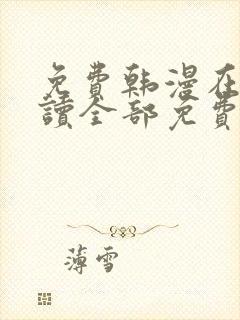 免费韩漫在
讀全部免費
薄雪